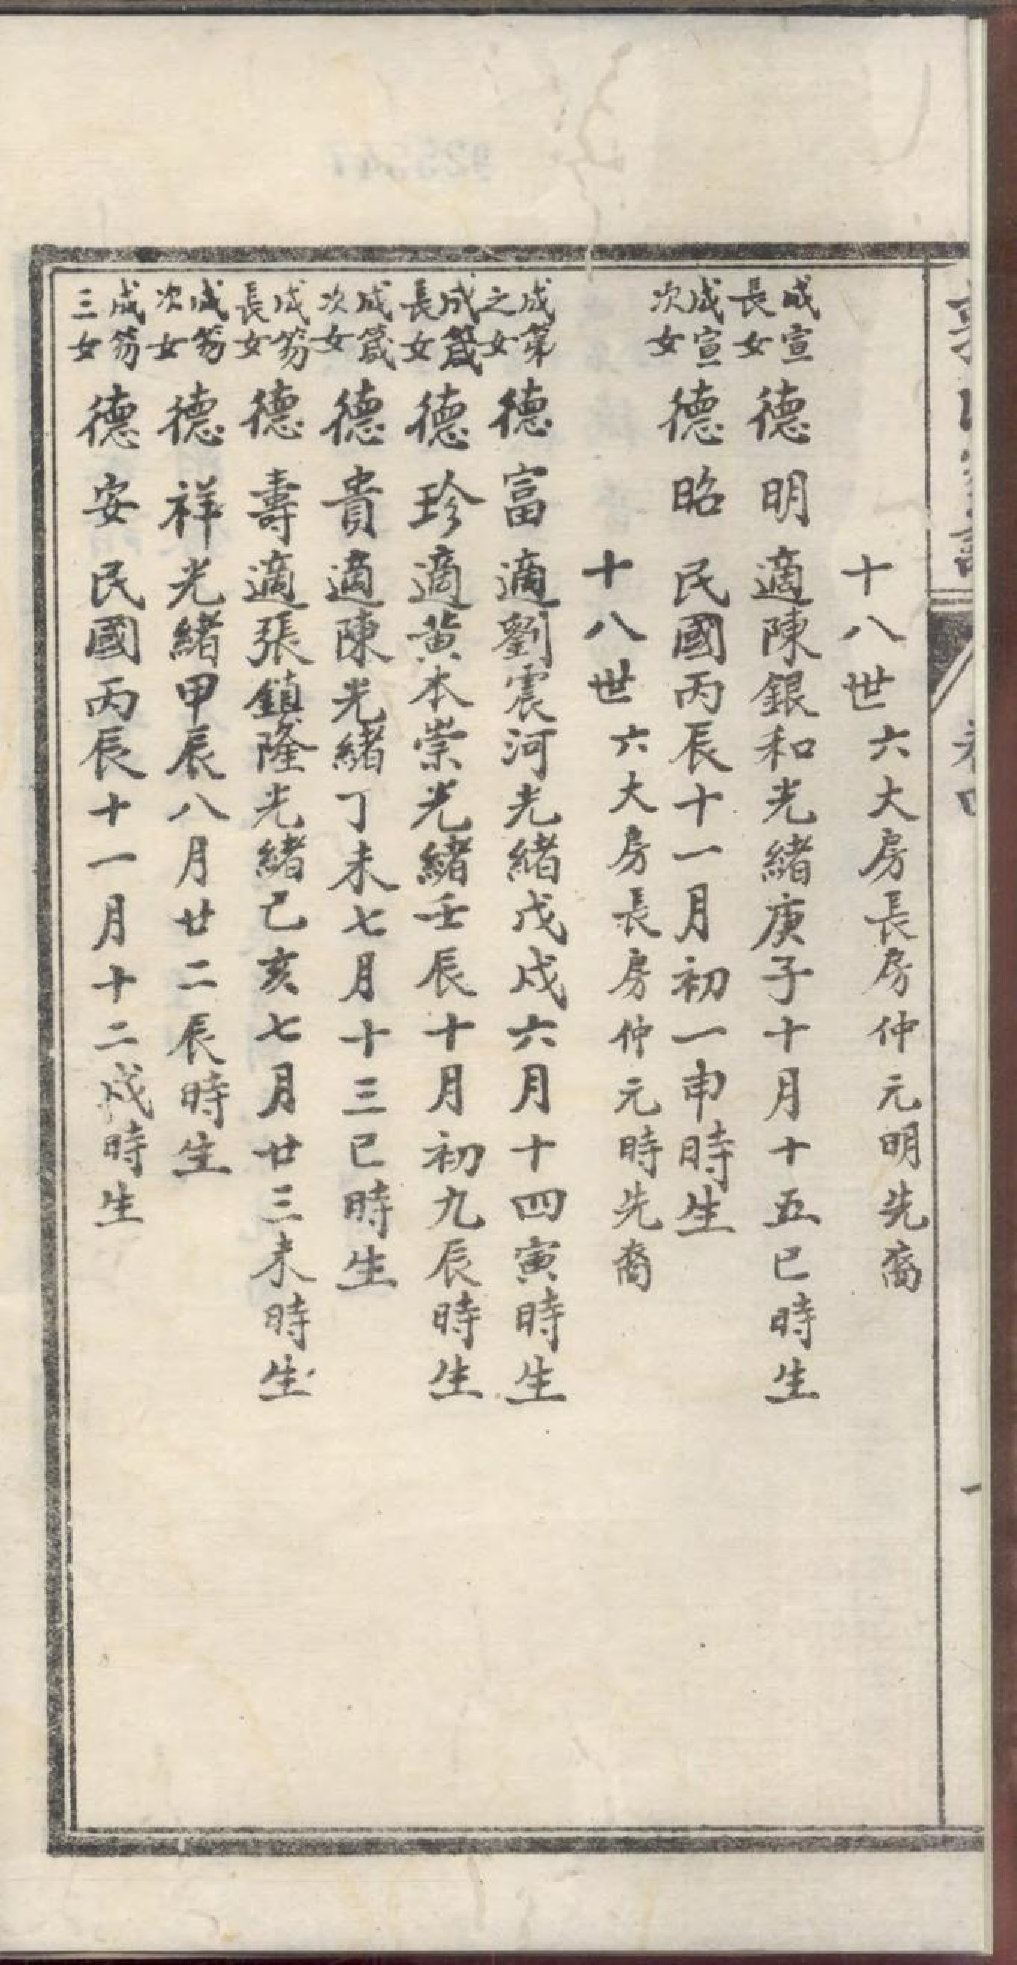 卷四
一
十八世六大房長房仲元明先裔
成宣長女德明適陳銀和光緒庚子十月十五巳時生
成宣次女德昭民國丙辰十一月初一申時生
十八世六大房長房仲元時先裔
成第之女德富適劉震河光緒戊戌六月十四寅時生
成箴長女德珍適黃本崇光緒壬辰十月初九辰時生
成箴次女德貴適陳光緒丁未七月十三巳時生
成芴長女德壽適張鎮隆光緒己亥七月廿三未時生
成芴次女德祥光緒甲辰八月廿二辰時生
成芴三女德安民國丙辰十一月十二戌時生